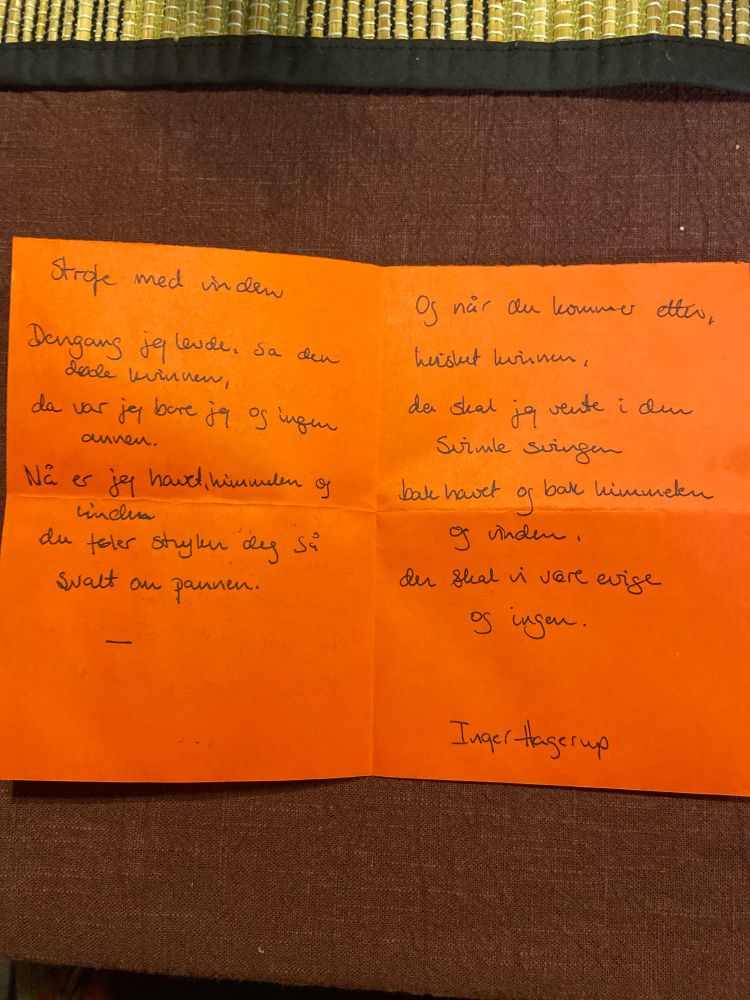 Strofe med vinden
Dengang jeg levde, sa den
døde kvinnen,
da var jeg bare jeg og ingen
annen.
Nå er jeg havet, himmelen og
vinden
du føler stryker deg så
svalt om pannen.
—
Og når du kommer etter,
hvisket kvinnen,
da skal jeg vente i den
svimle svingen
bak havet og bak himmelen
og vinden.
der skal vi være evige
og ingen.
Inger Hagerup